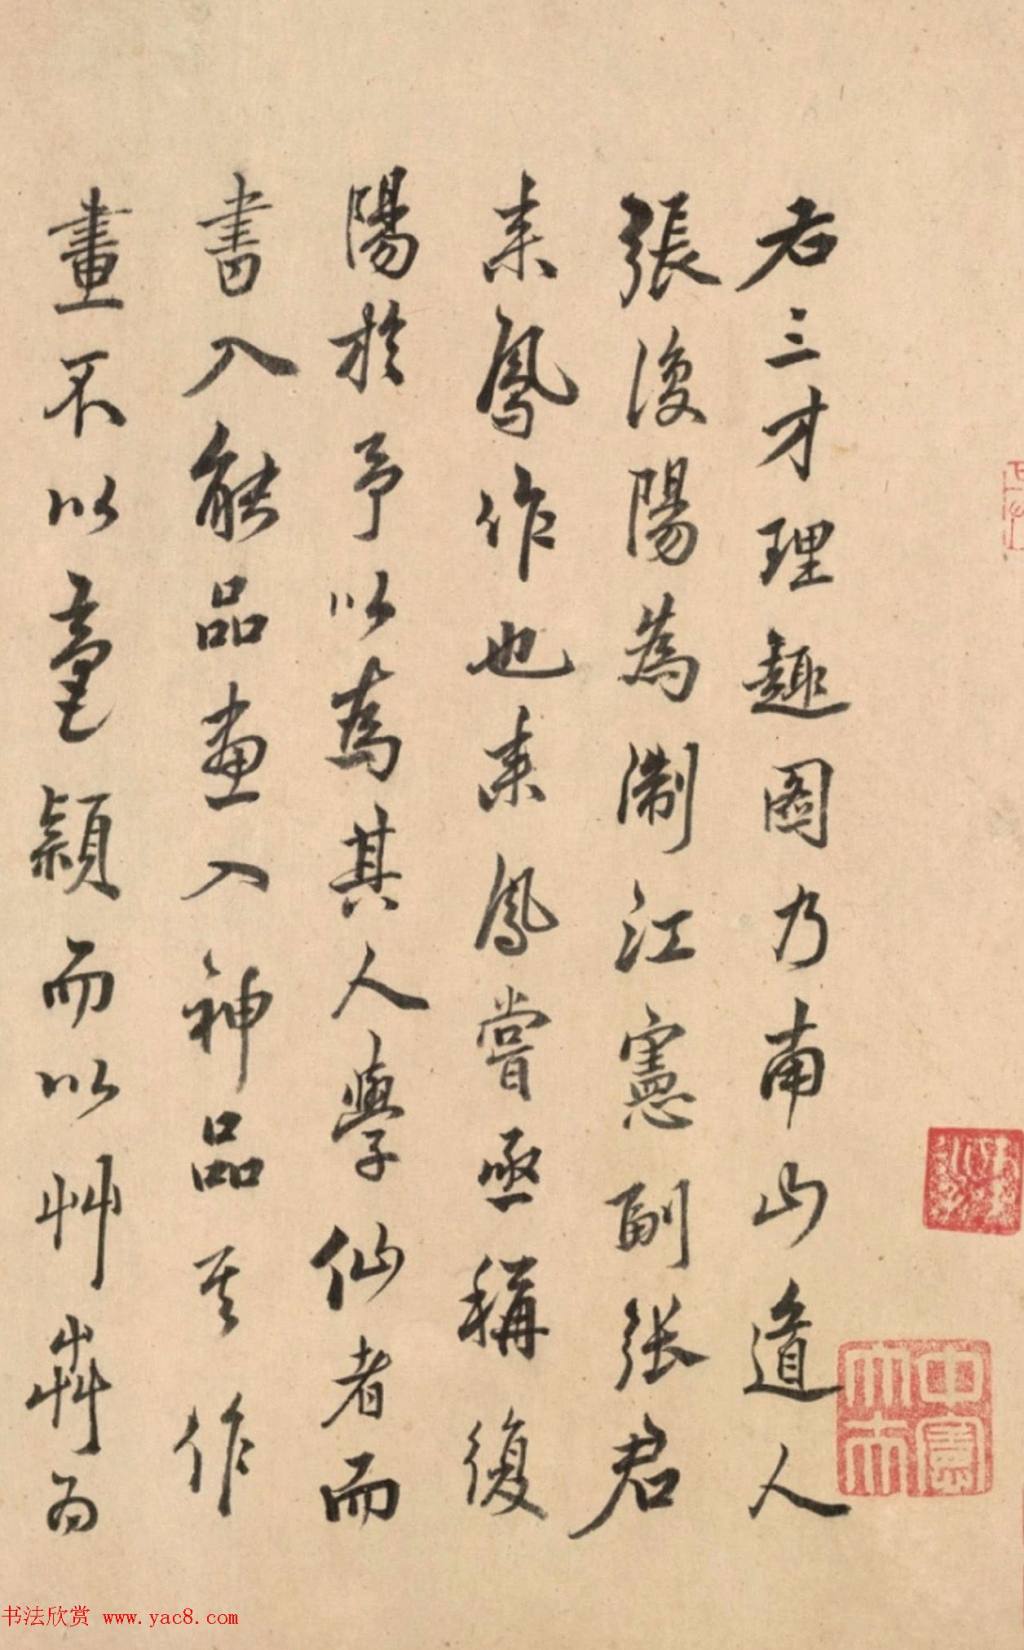 右三才理趣圖乃南山道人
張復陽為淛江憲副張君
来鳳作也来鳳嘗亟稱復
陽於予以為其人學仙者而
書入能品畫入神品其作
畫不以毫穎而以艸
為
中憲大夫
书法欣赏 www.yac8.com